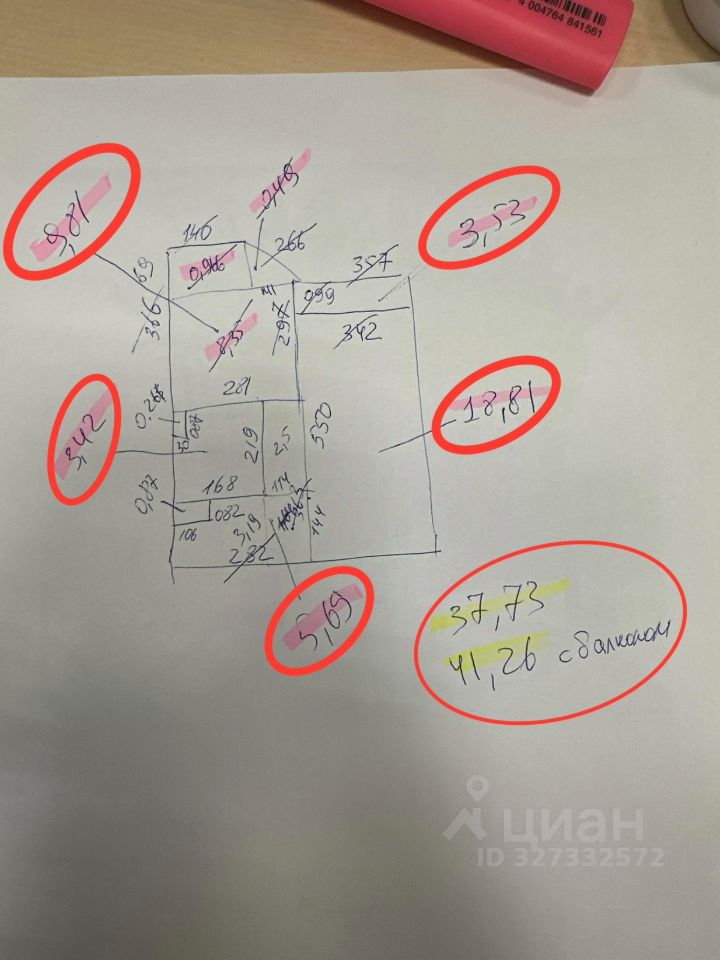 4 004764 841561
9,81
0,49
3,53
146
266
357
0,966
69
099
366
8,35
297
342
281
0,268
087
3,42
219
2,5
550
18,81
0,87
168
114
082
106
3,19
144
232
5,69
37,73
41,26 с балконом
циан
ID 327332572